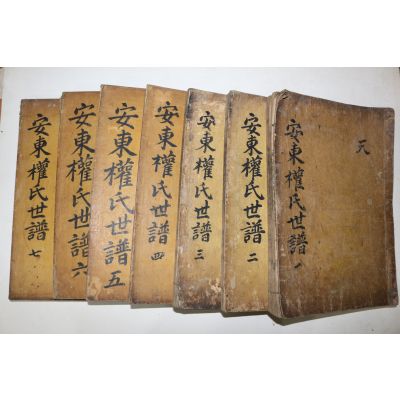 天
安東權氏世譜 一
安東權氏世譜 二
安東權氏世譜 三
安東權氏世譜 四
安東權氏世譜 五
安東權氏世譜 六
安東權氏世譜 七